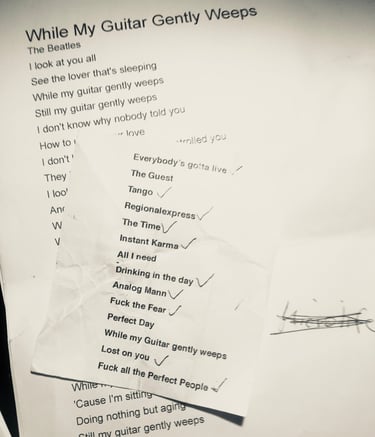 While My Guitar Gently Weeps
The Beatles
I look at you all
See the lover that's sleeping
While my guitar gently weeps
Still my guitar gently weeps
I don't know why nobody told you
How to
love
I don't
They
I loo
An
W
Everybody's gotta live
The Guest
Tango
Regionalexpress
The Time
Instant Karma
All I need
Drinking in the day
Analog Mann
Fuck the Fear
Perfect Day
While My Guitar gently weeps
Lost on you
Fuck all the Perfect People
While
'Cause I'm sitting
Doing nothing but aging
Still my guitar gently weeps